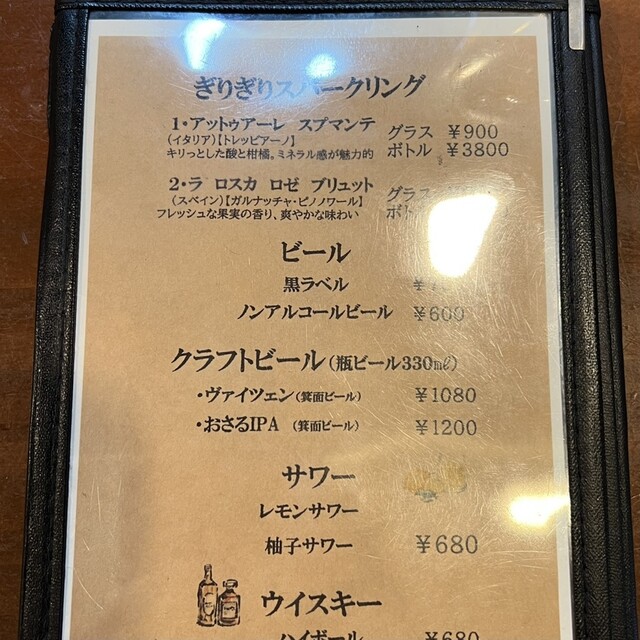 ぎりぎりスパークリング
1・アットゥアーレ スプマンテ グラス ¥900
(イタリア)【トレッビアーノ】
キリっとした酸と柑橘。ミネラル感が魅力的 ボトル ¥3800
2・ラ ロスカ ロゼ ブリュット グラス
(スペイン)【ガルナッチャ・ピノノワール】
フレッシュな果実の香り、爽やかな味わい
ビール
黒ラベル
ノンアルコールビール ¥600
クラフトビール(瓶ビール330㎖)
・ヴァイツェン(箕面ビール) ¥1080
・おさるIPA (箕面ビール) ¥1200
サワー
レモンサワー
柚子サワー ¥680
ウイスキー
ハイボール ¥680